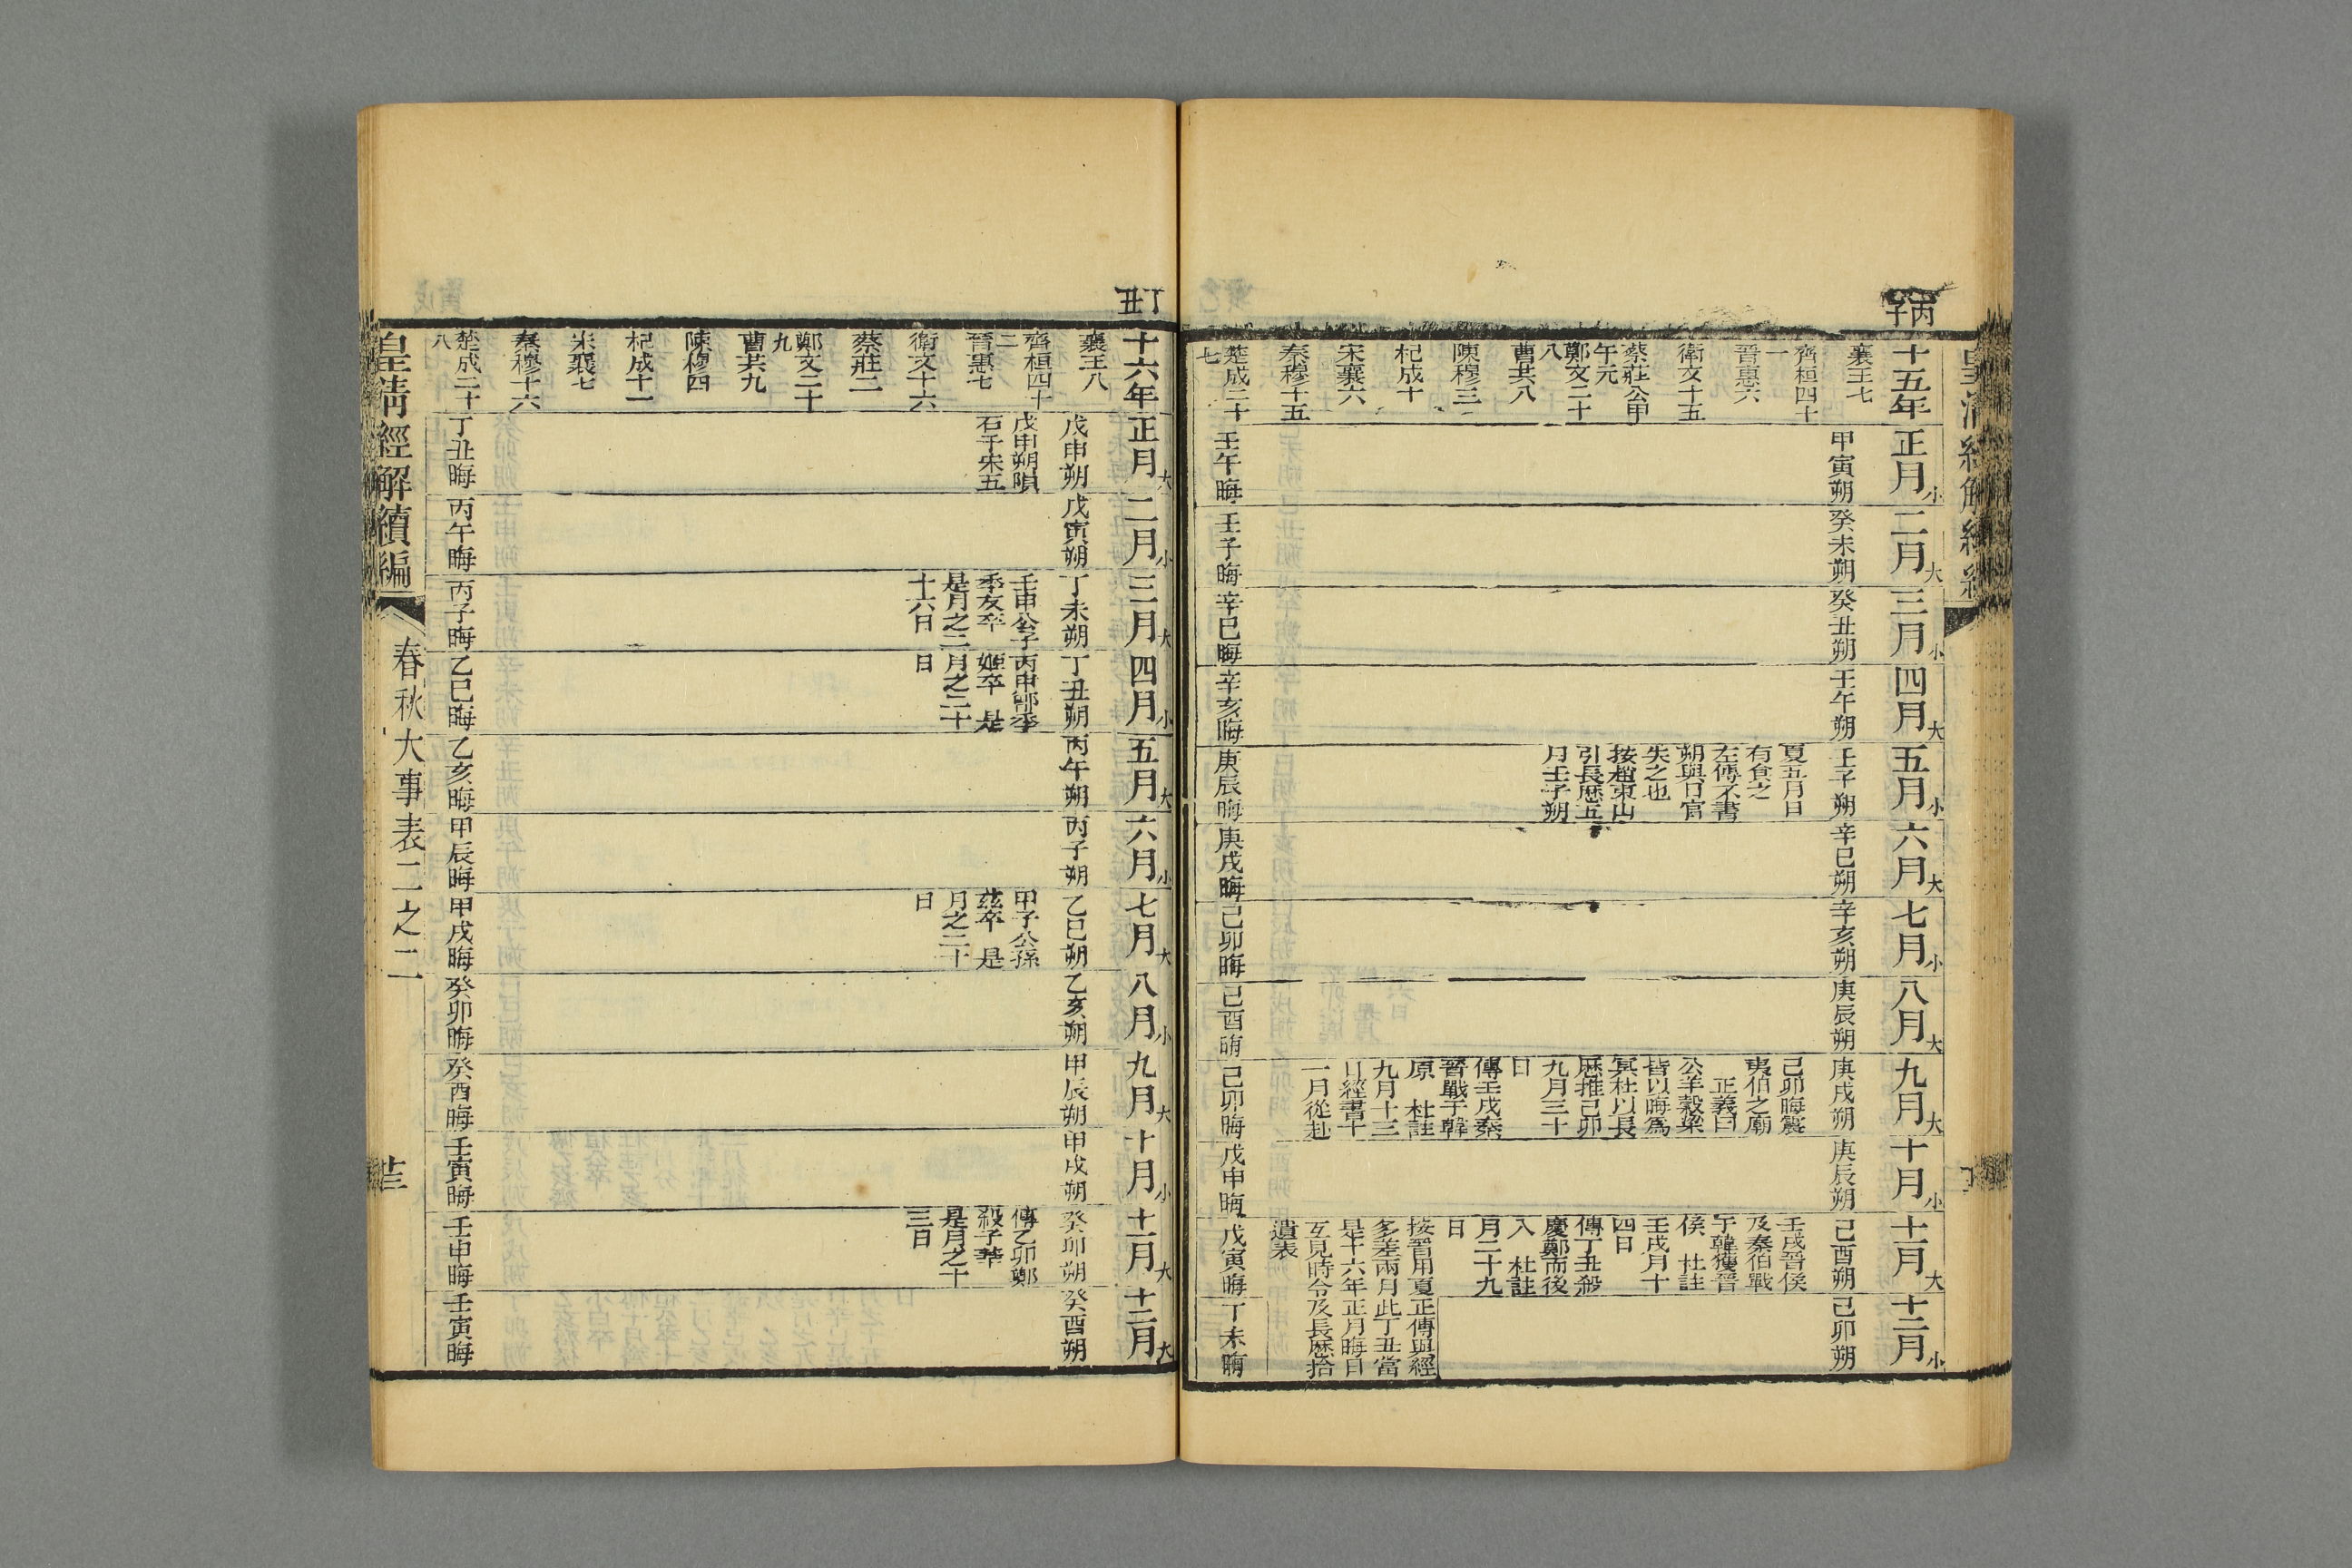 丙子
十五年
襄王七
齊桓四十
一
晉惠六
衞文十五
蔡莊公甲
午元
鄭文二十
八
曹共八
陳穆三
杞成十
宋襄六
秦穆十五
楚成二十
七
正月小
甲寅朔
壬午晦
二月大
癸未朔
壬子晦
三月小
癸丑朔
辛巳晦
四月大
壬午朔
辛亥晦
五月小
壬子朔
夏五月日
有食之
左傳不書
朔與日官
失之也
按趙東山
引長歷五
月壬子朔
庚辰晦
六月大
辛巳朔
庚戌晦
七月小
辛亥朔
己卯晦
八月大
庚辰朔
己酉晦
九月大
庚戌朔
己卯晦震
夷伯之廟
正義曰
公羊穀梁
皆以晦爲
冥杜以長
歷推己卯
九月三十
日
傳壬戌秦
晉戰于韓
原 杜註
九月十三
日經書十
一月從赴
己卯晦
十月小
庚辰朔
戊申晦
十一月大
己酉朔
壬戌晉侯
及秦伯戰
于韓獲晉
侯 杜註
壬戌月十
四日
傳丁丑殺
慶鄭而後
入 杜註
月二十九
日
按晉用夏正傳與經
多差兩月此丁丑當
是十六年正月晦日
互見時令及長歷拾
遺表
戊寅晦
十二月小
己卯朔
丁未晦
丁丑
十六年
襄王八
齊桓四十
二
晉惠七
衞文十六
蔡莊二
鄭文二十
九
曹共九
陳穆四
杞成十一
宋襄七
秦穆十六
楚成二十
八
正月大
戊申朔
戊申朔隕
石于宋五
丁丑晦
二月小
戊寅朔
丙午晦
三月大
丁未朔
壬申公子
季友卒
是月之二
十六日
丙子晦
四月小
丁丑朔
丙申鄫季
姬卒 是
月之二十
日
乙巳晦
五月大
丙午朔
乙亥晦
六月小
丙子朔
甲辰晦
七月大
乙巳朔
甲子公孫
茲卒 是
月之二十
日
甲戌晦
八月小
乙亥朔
癸卯晦
九月大
甲辰朔
癸酉晦
十月小
甲戌朔
壬寅晦
十一月大
癸卯朔
傳乙卯鄭
殺子華
是月之十
三日
壬申晦
十二月大
癸酉朔
壬寅晦
皇清經解續編
春秋大事表二之二